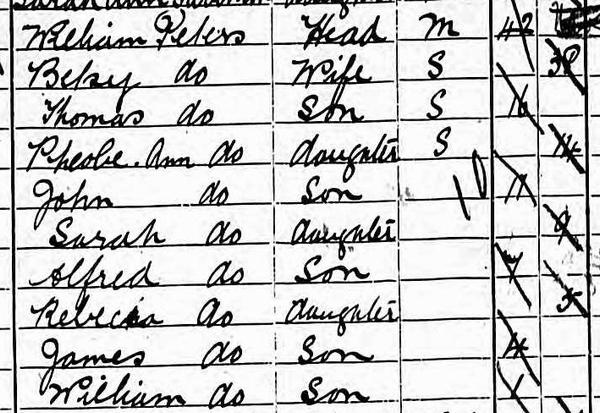 Sarah Ann daughter
William Peters Head M 42
Betsy do Wife S 38
Thomas do Son S 16
Pheobe Ann do daughter S 14
John do Son 11
Sarah do daughter 9
Alfred do Son 7
Rebecca do daughter 5
James do Son 4
William do Son 1
10